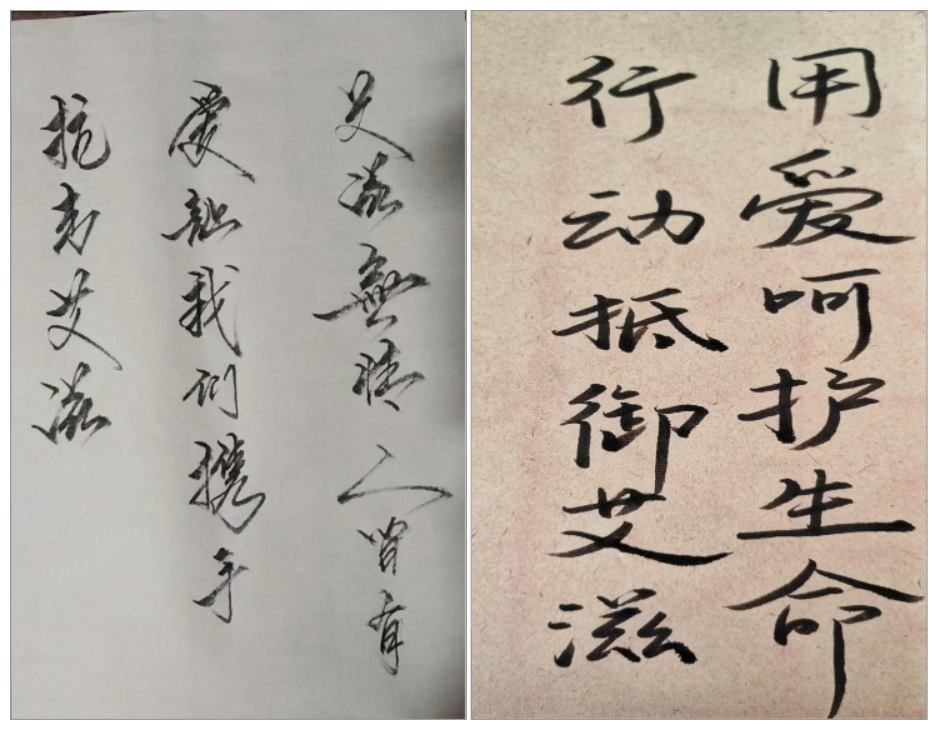 艾滋無情人間有
愛让我们携手
抗击艾滋
用爱呵护生命
行动抵御艾滋